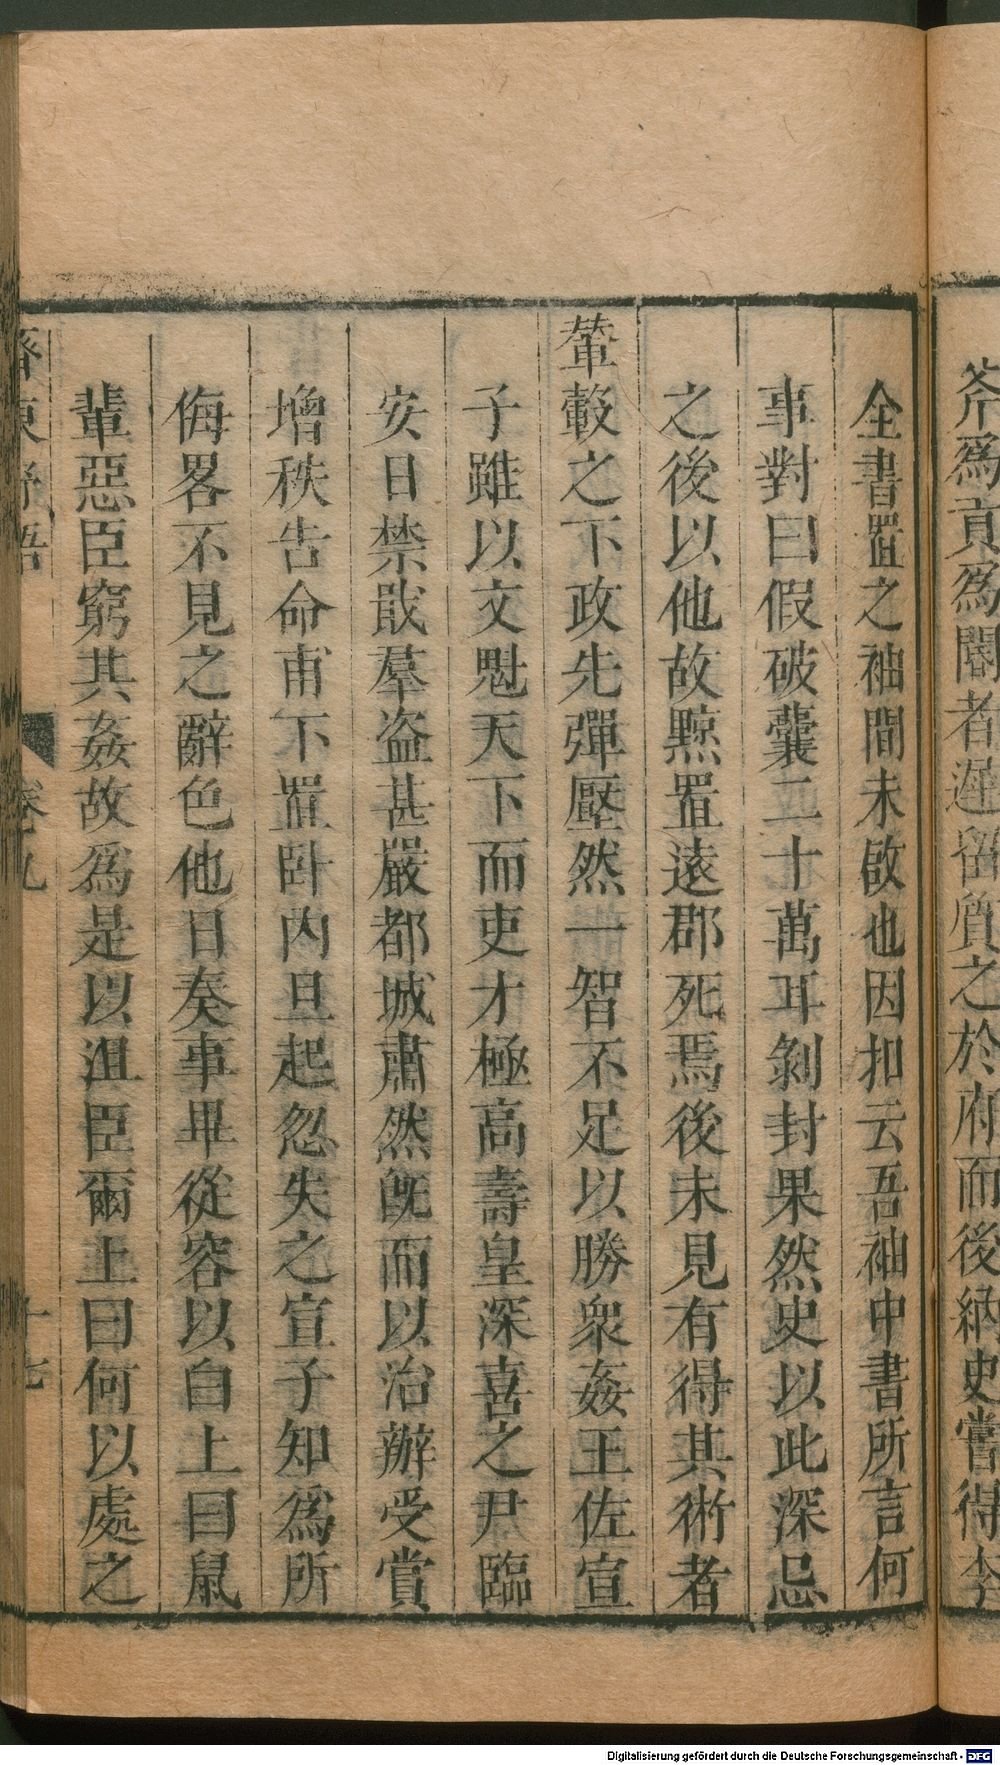 斧爲貢爲閽者遲留質之於府而後納史嘗得李
全書置之袖間未啟也因扣云吾袖中書所言何
事對曰假破囊二十萬耳剝封果然史以此深忌
之後以他故黥置遠郡死焉後未見有得其術者
輦轂之下政先彈壓然一智不足以勝衆姦王佐宣
子雖以文魁天下而吏才極高壽皇深喜之尹臨
安日禁戢羣盜甚嚴都城肅然旣而以治辦受賞
增秩告命甫下置卧内旦起忽失之宣子知爲所
侮畧不見之辭色他日奏事畢從容以白上曰鼠
輩惡臣窮其姦故爲是以沮臣爾上曰何以處之
齊東野語 卷九 十七
Digitalisierung gefördert durch die Deutsche Forschungsgemeinschaft - DFG